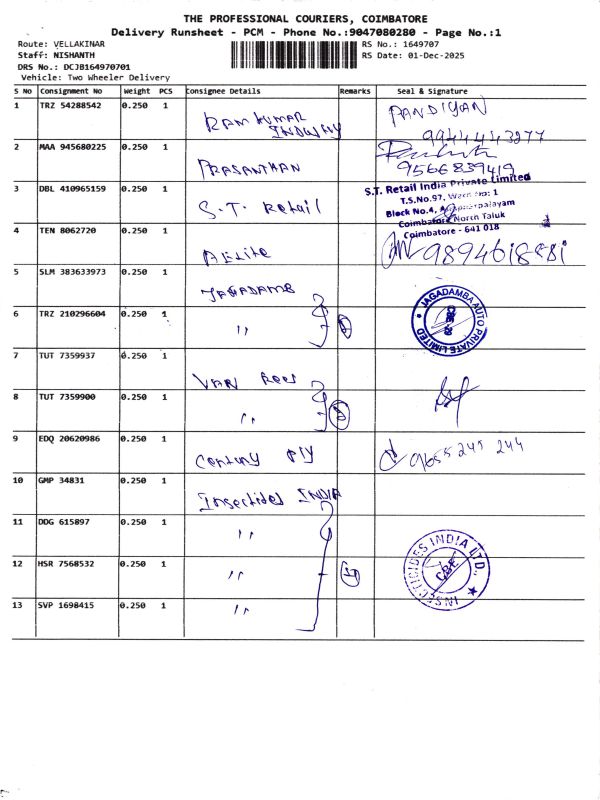 THE PROFESSIONAL COURIERS, COIMBATORE
Delivery Runsheet - PCM - Phone No.:9047080280 - Page No.:1
Route: VELLAKINAR
RS No.: 1649707
Staff: NISHANTH
RS Date: 01-Dec-2025
DRS No.: DCJB164970701
Vehicle: Two Wheeler Delivery
S NO Consignment No Weight PCS Consignee Details Remarks Seal & Signature
1 TRZ 54288542 0.250 1 RAM KUMAR PANDIYAN
9944443277
2 MAA 945680225 0.250 1 PRASANTHAN
9566839419
3 DBL 410965159 0.250 1 S.T. Retail
S.T. Retail India Private Limited
T.S.No.97, Ward No: 1
Block No.4,
Coimbatore North Taluk
Coimbatore - 641 018
4 TEN 8062720 0.250 1
5 SLM 383633973 0.250 1 JAGADAMB
JAGADAMBA AUTO PRIVATE LIMITED
CBE-29
6 TRZ 210296604 0.250 1 "
7 TUT 7359937 0.250 1 VAN Rees
8 TUT 7359900 0.250 1 "
9 EDQ 20620986 0.250 1 Century Ply 9655 245 244
10 GMP 34831 0.250 1 Insectides INDIA
11 DDG 615897 0.250 1 "
INSECTICIDES INDIA LTD.,
CBE
12 HSR 7568532 0.250 1 "
13 SVP 1698415 0.250 1 "